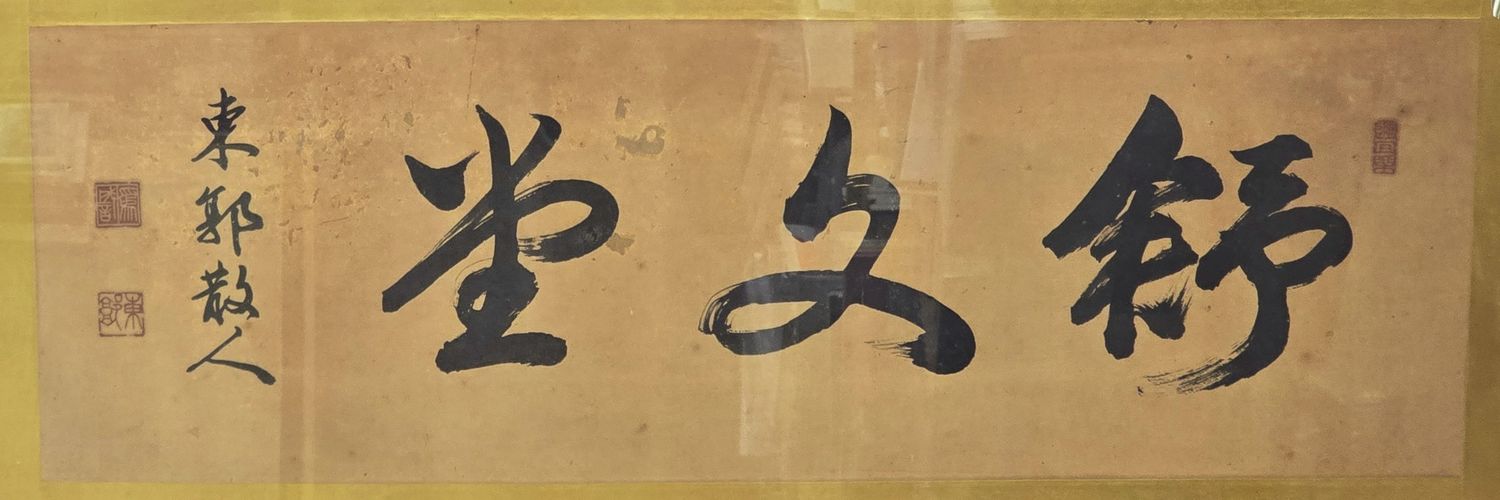 舒文堂
東郭散人